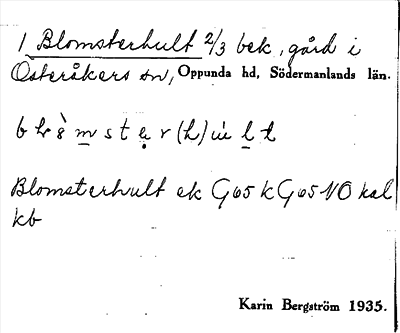 1 Blomsterhult 2/3 bek, gård i
Österåkers sn, Oppunda hd, Södermanlands län.
Blomsterhult ek G65 k G65 NO kal
kb
Karin Bergström 1935.